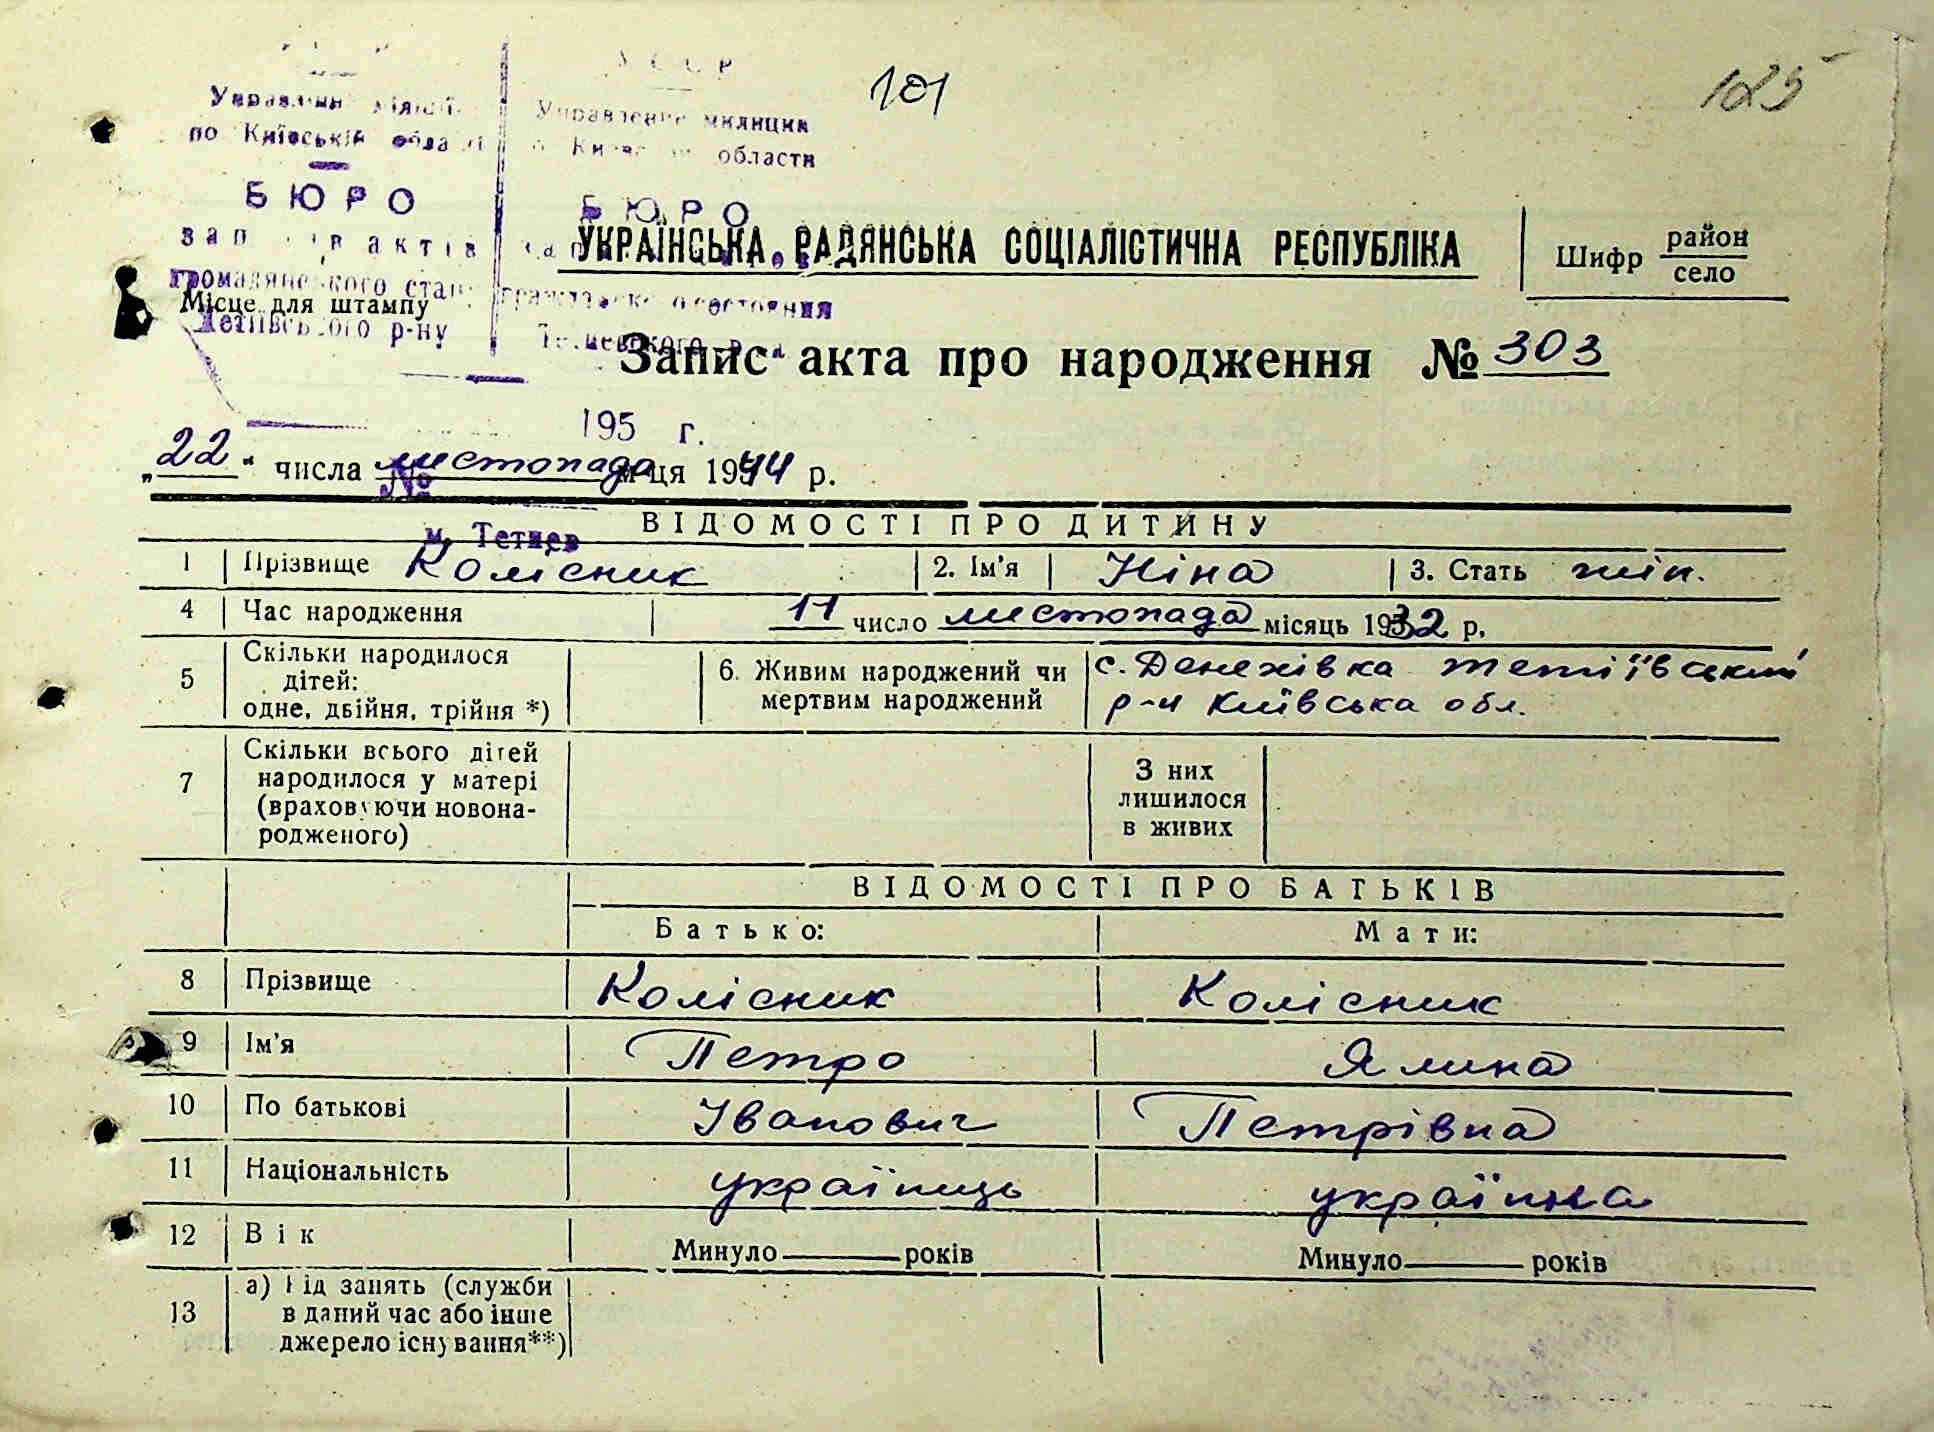 101
125
УССР
Управління міліції
по Київській області
БЮРО
запис актів
громадянського стану
Тетіївського р-ну
Управление милиции
по Киевской области
БЮРО
гражданского состояния
Тетиевского р-на
195 г.
№
м. Тетиев
УКРАЇНСЬКА РАДЯНСЬКА СОЦІАЛІСТИЧНА РЕСПУБЛІКА
Шифр район
село
Місце для штампу
Запис акта про народження № 303
„22" числа листопада м-ця 1944 р.
ВІДОМОСТІ ПРО ДИТИНУ
1 Прізвище Колісник 2. Ім'я Ніна 3. Стать жін.
4 Час народження 11 число листопада місяць 1932 р.
5 Скільки народилося дітей: одне, двійня, трійня *)
6. Живим народжений чи мертвим народжений
с. Денехівка Тетіївський
р-н Київська обл.
7 Скільки всього дітей народилося у матері (враховуючи новона-родженого)
З них лишилося в живих
ВІДОМОСТІ ПРО БАТЬКІВ
Батько: Мати:
8 Прізвище Колісник Колісник
9 Ім'я Петро Ялина
10 По батькові Іванович Петрівна
11 Національність українць українка
12 Вік Минуло років Минуло років
13 а) Рід занять (служби
в даний час або інше
джерело існування**)